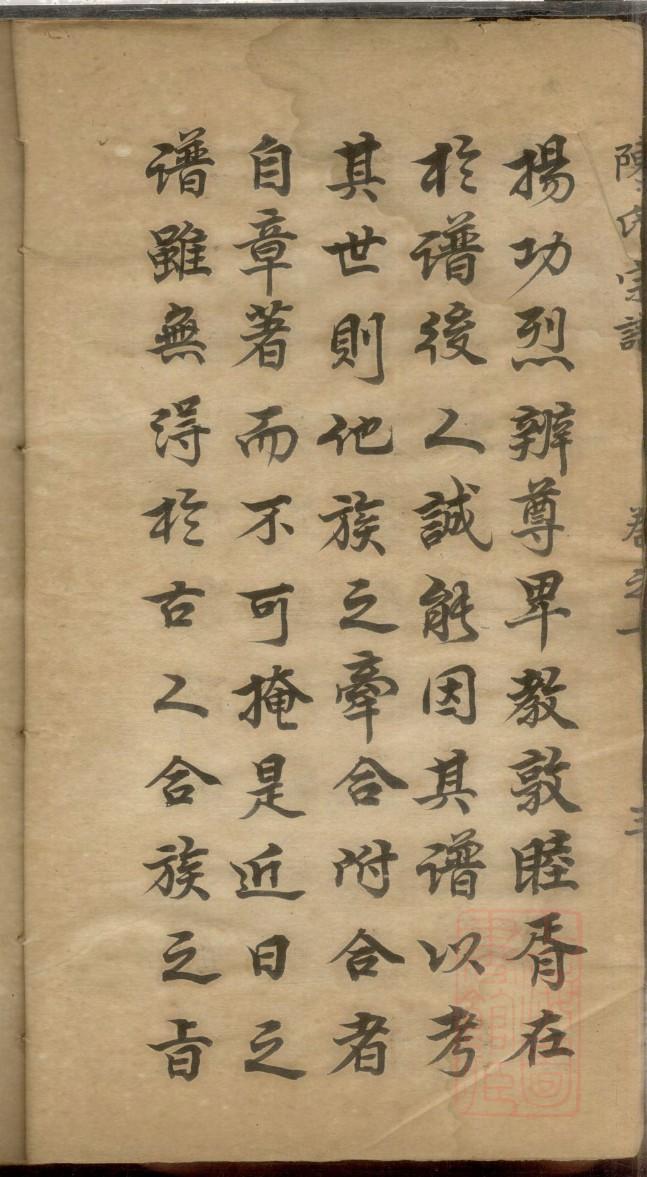 陳氏宗譜 卷之一 三
揚功烈辨尊卑教敦睦胥在
於譜後人誠能因其譜以考
其世則他族之牽合附合者
自章著而不可掩是近日之
譜雖無得於古人合族之旨